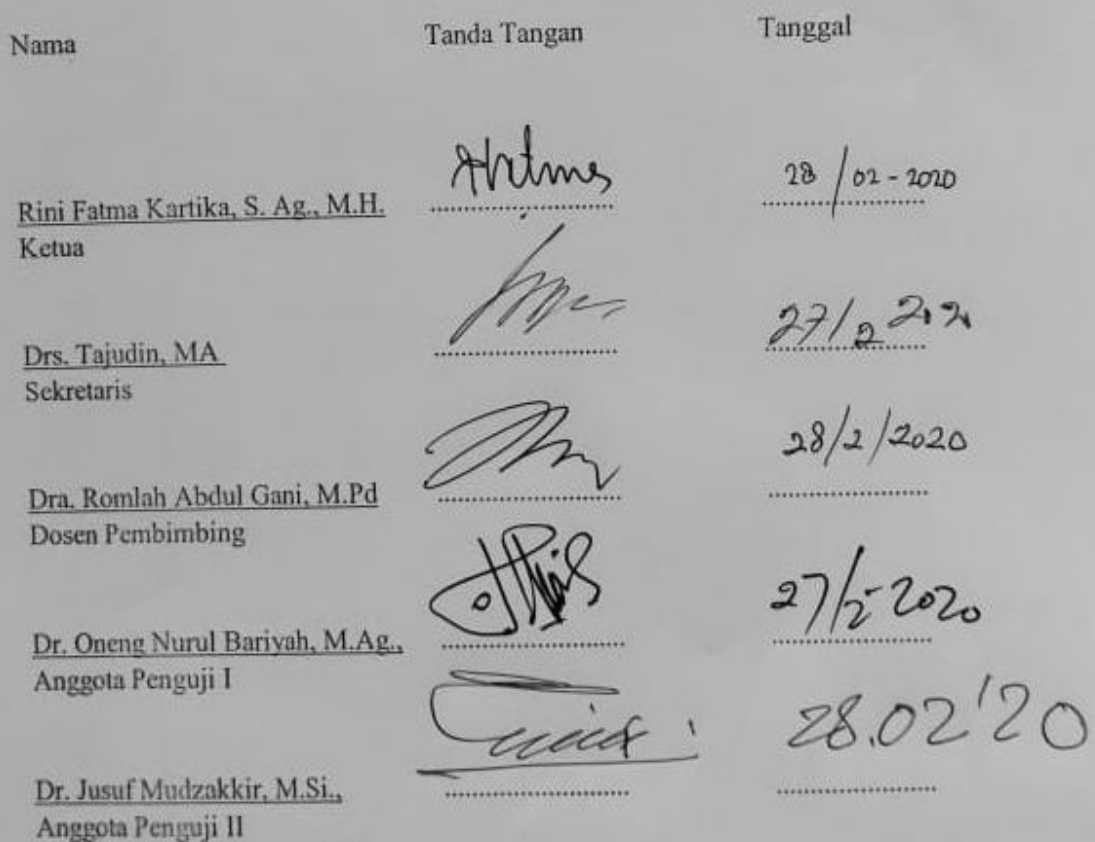 Nama Tanda Tangan Tanggal
28/02-2020
Rini Fatma Kartika, S. Ag., M.H.
Ketua
27/2
Drs. Tajudin, MA
Sekretaris
28/2/2020
Dra. Romlah Abdul Gani, M.Pd
Dosen Pembimbing
27/2-2020
Dr. Oneng Nurul Bariyah, M.Ag.,
Anggota Penguji I
28.02'20
Dr. Jusuf Mudzakkir, M.Si.,
Anggota Penguji II